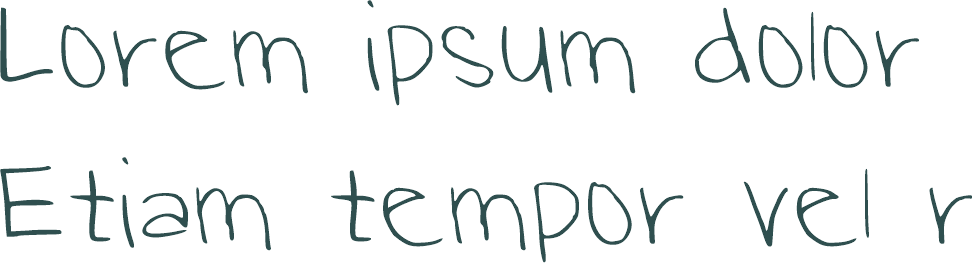 Lorem ipsum dolor
Etiam tempor vel r